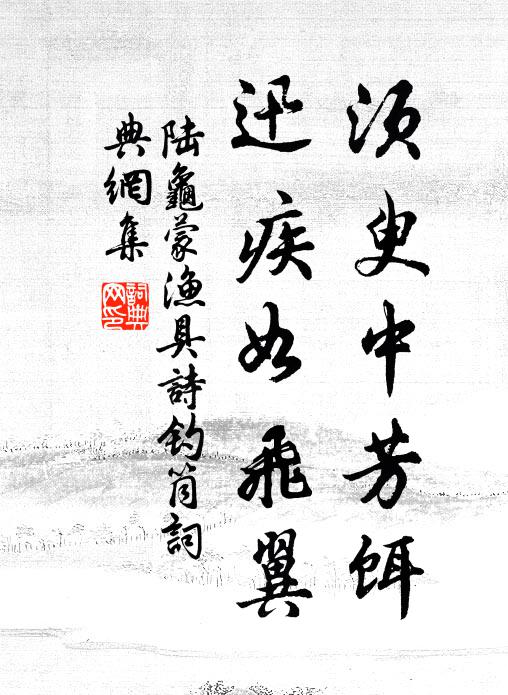 須臾中芳餌
迅疾如飛翼
陆龜蒙漁具詩釣筒詞
典網集
詞典網印